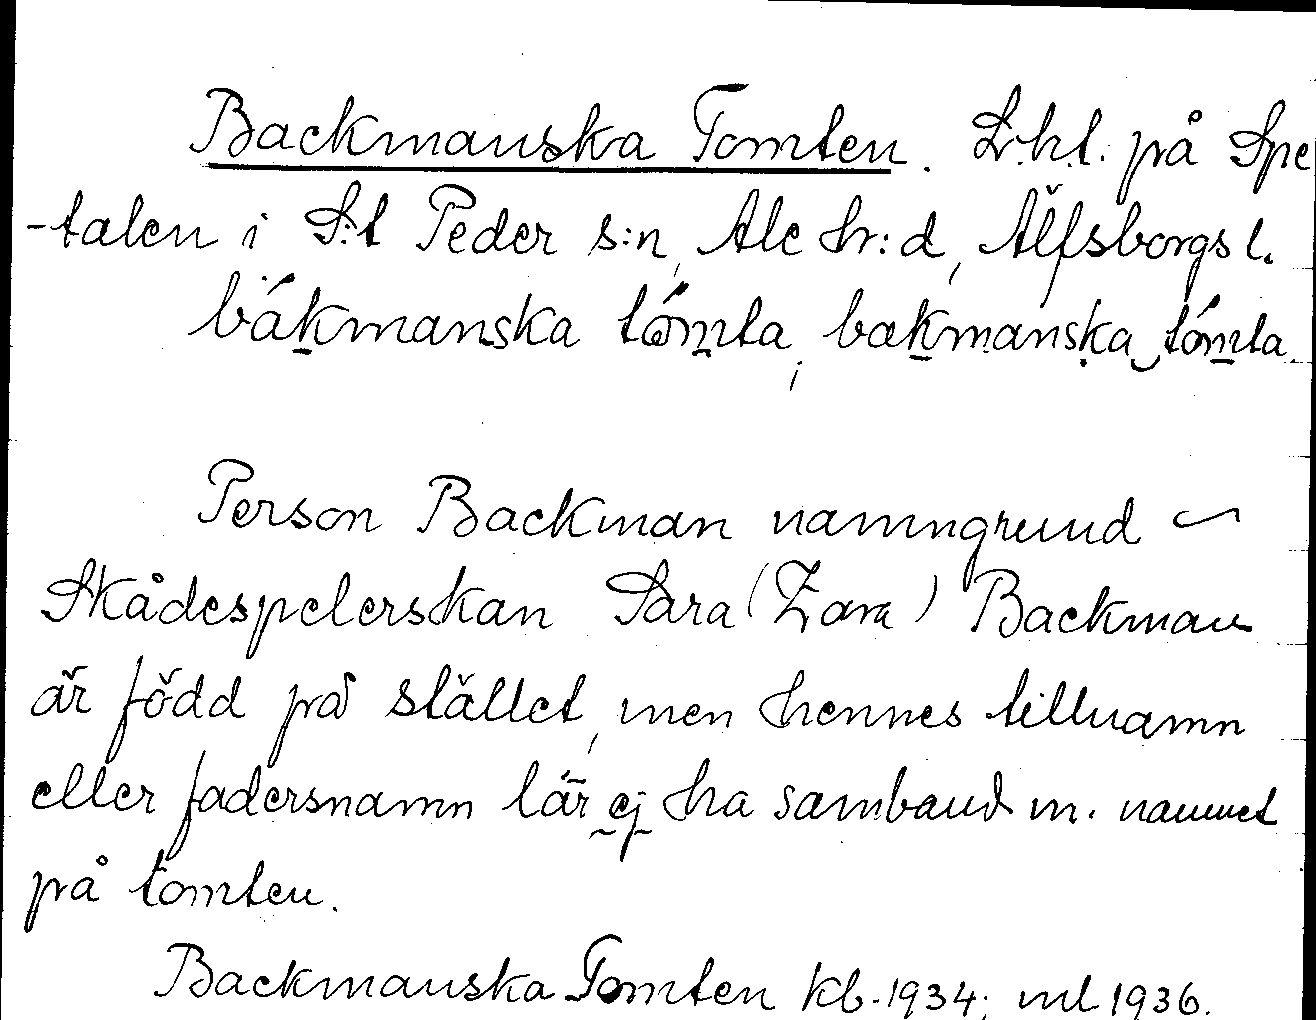 Backmanska Tomten. L.h.t. på Spe
-talen i S:t Peder s:n, Ale hr:d, Älfsborgs l.
bákmanska tómta, bakmanska tómta.
Person Backman namngrund
Skådespelerskan Sara (Zara) Backman
är född på stället, men hennes tillnamn
eller fadersnamn lär ej ha samband m. namnet
på tomten.
Backmanska Tomten kb. 1934; ml 1936.